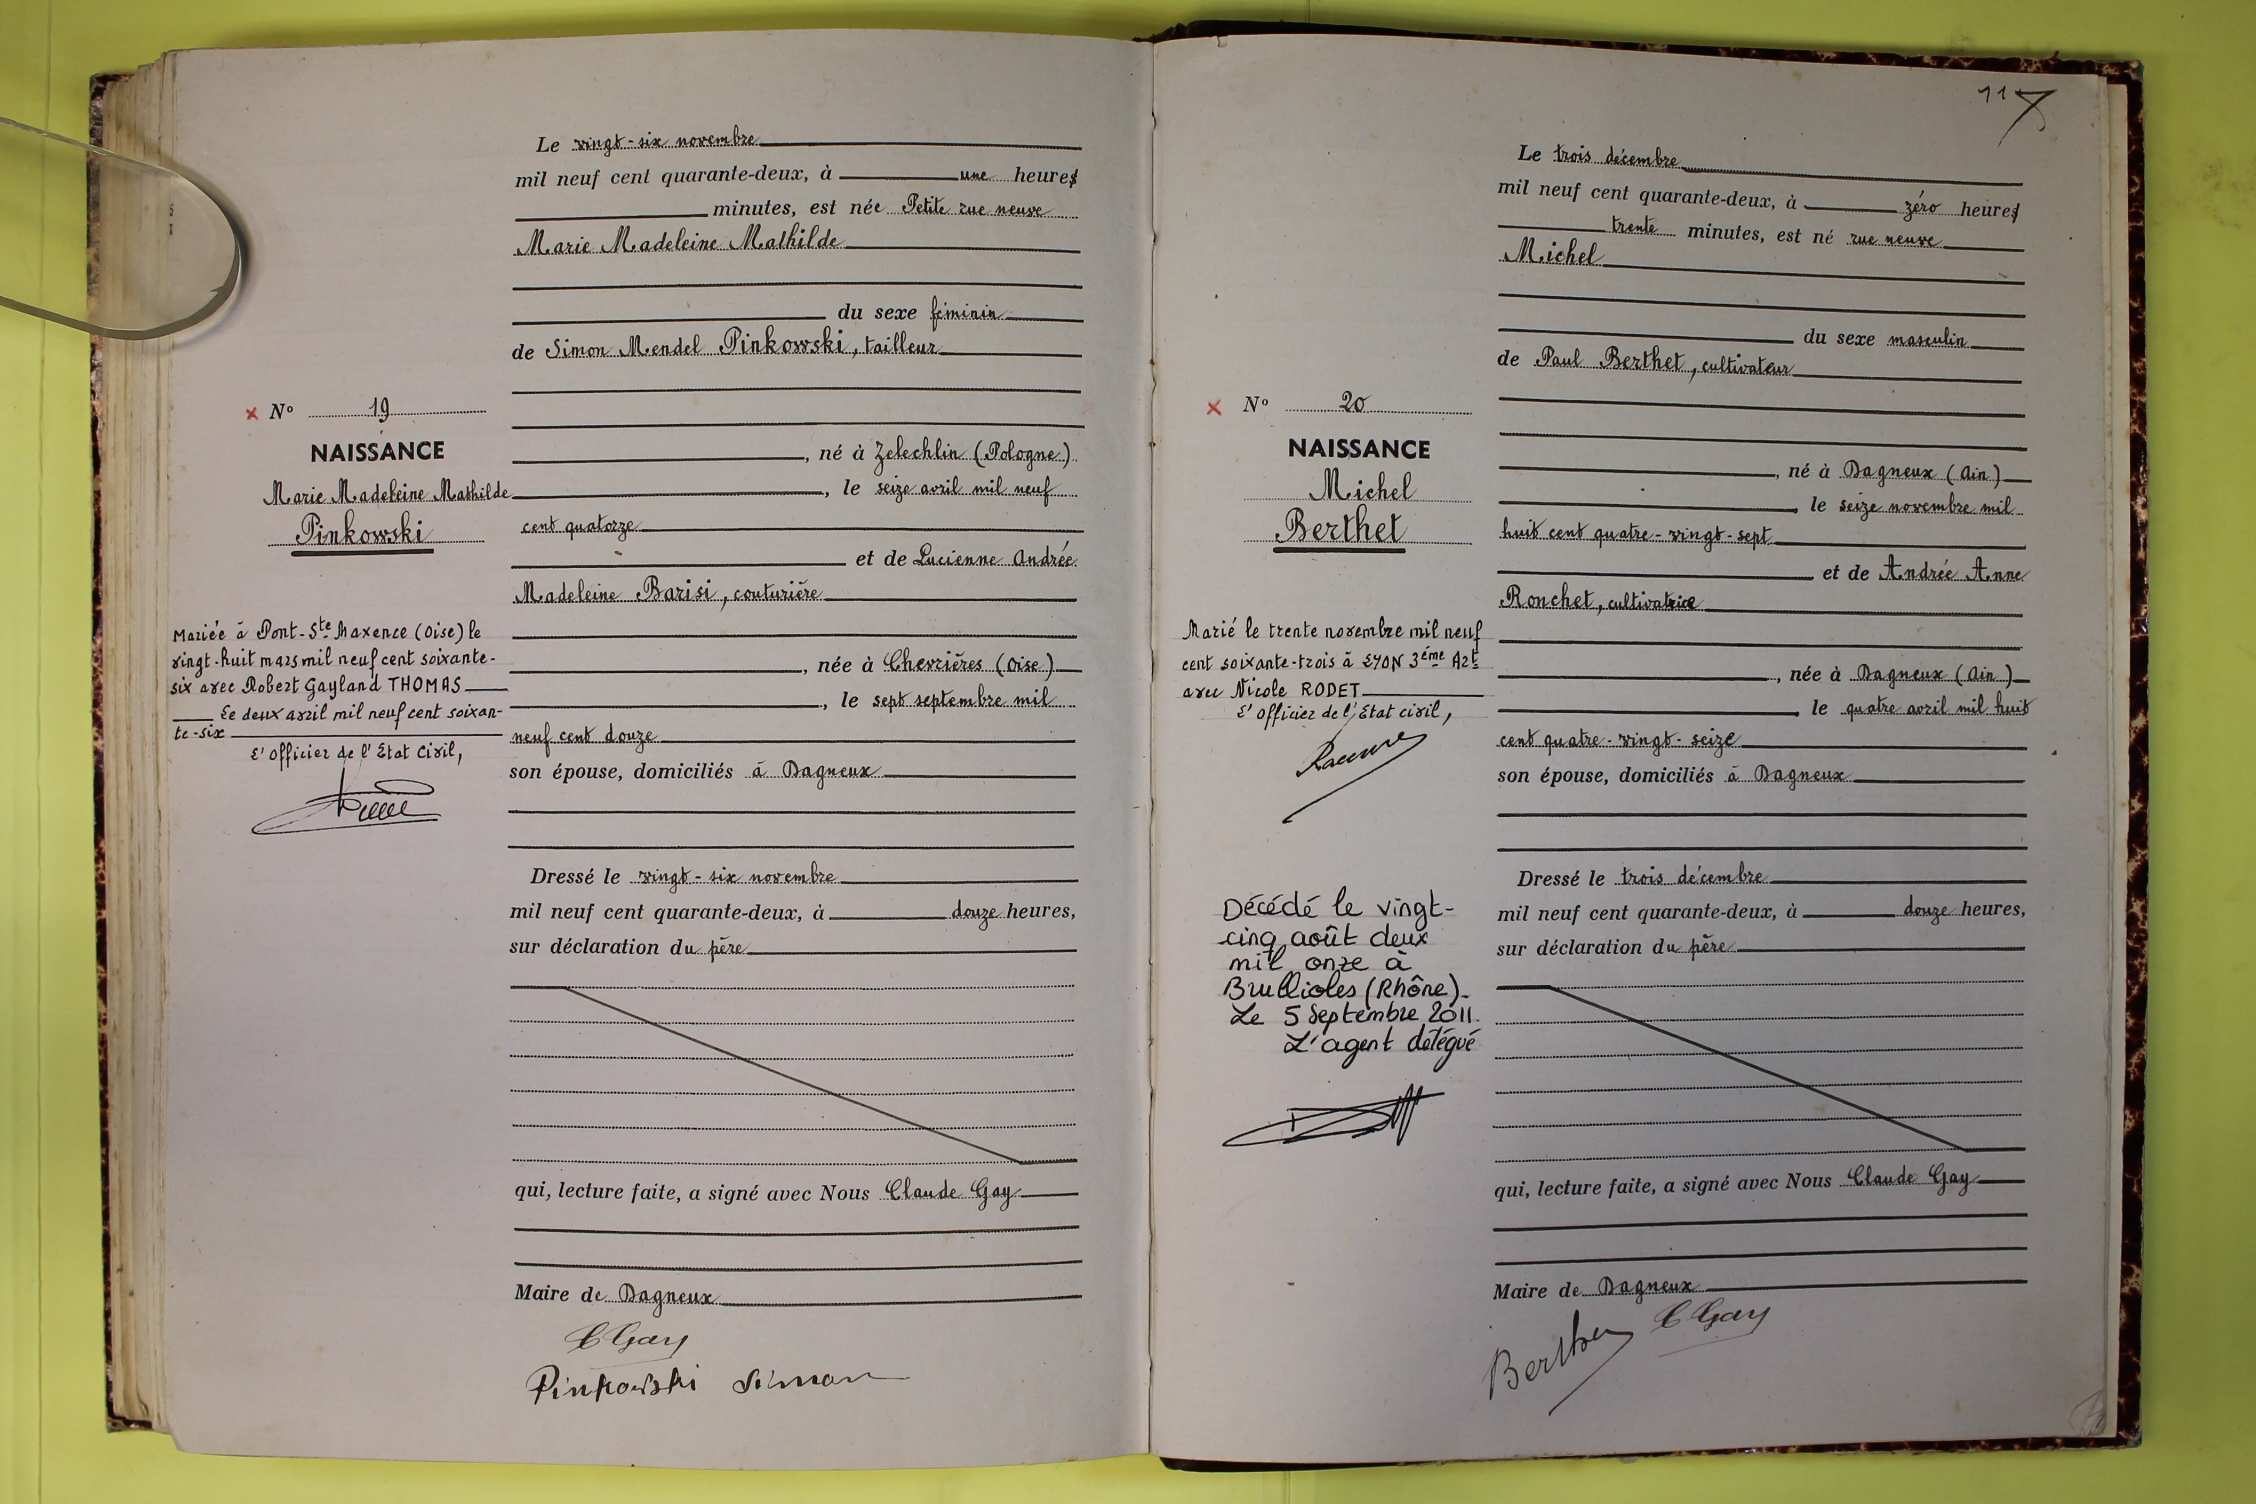 Le vingt-six novembre
mil neuf cent quarante-deux, à une heures
minutes, est née Petite rue neuve
Marie Madeleine Mathilde
du sexe féminin
de Simon Mendel Pinkowski, tailleur
× Nº 19
NAISSANCE
Marie Madeleine Mathilde
Pinkowski
, né à Zelechlin (Pologne)
, le seize avril mil neuf
cent quatorze
et de Lucienne Andrée
Madeleine Barisi, couturière
Mariée à Pont-Ste Maxence (Oise) le
vingt-huit mars mil neuf cent soixante-
six avec Robert Gayland THOMAS
Le deux avril mil neuf cent soixan-
te-six
L'Officier de l'Etat Civil,
, née à Chevrières (Oise)
, le sept septembre mil
neuf cent douze
son épouse, domiciliés à Dagneux
Dressé le vingt-six novembre
mil neuf cent quarante-deux, à douze heures,
sur déclaration du père
qui, lecture faite, a signé avec Nous Claude Gay
Maire de Dagneux
C Gay
Pinkowski Simon
117
Le trois décembre
mil neuf cent quarante-deux, à zéro heures
trente minutes, est né rue neuve
Michel
du sexe masculin
de Paul Berthet, cultivateur
× Nº 20
NAISSANCE
Michel
Berthet
, né à Dagneux (Ain)
, le seize novembre mil
huit cent quatre-vingt-sept
et de Andrée Anne
Ronchet, cultivatrice
Marié le trente novembre mil neuf
cent soixante-trois à LYON 3ème Art
avec Nicole RODET
L'Officier de l'Etat civil,
, née à Dagneux (Ain)
, le quatre avril mil huit
cent quatre-vingt-seize
son épouse, domiciliés à Dagneux
Décédé le vingt-
cinq août deux
mil onze à
Brullioles (Rhône).
Le 5 Septembre 2011.
L'agent délégué
Dressé le trois décembre
mil neuf cent quarante-deux, à douze heures,
sur déclaration du père
qui, lecture faite, a signé avec Nous Claude Gay
Maire de Dagneux
C Gay
Berthet